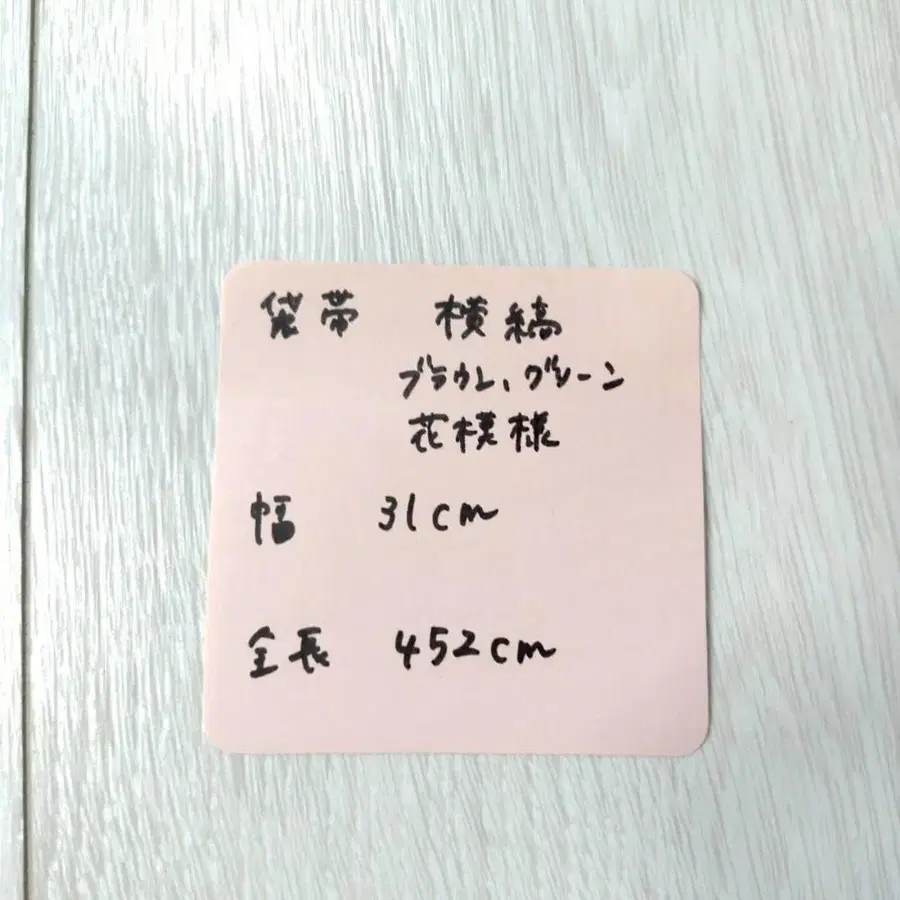 袋帯 横縞
ブラウン、グリーン
花模様
幅 31cm
全長 452cm